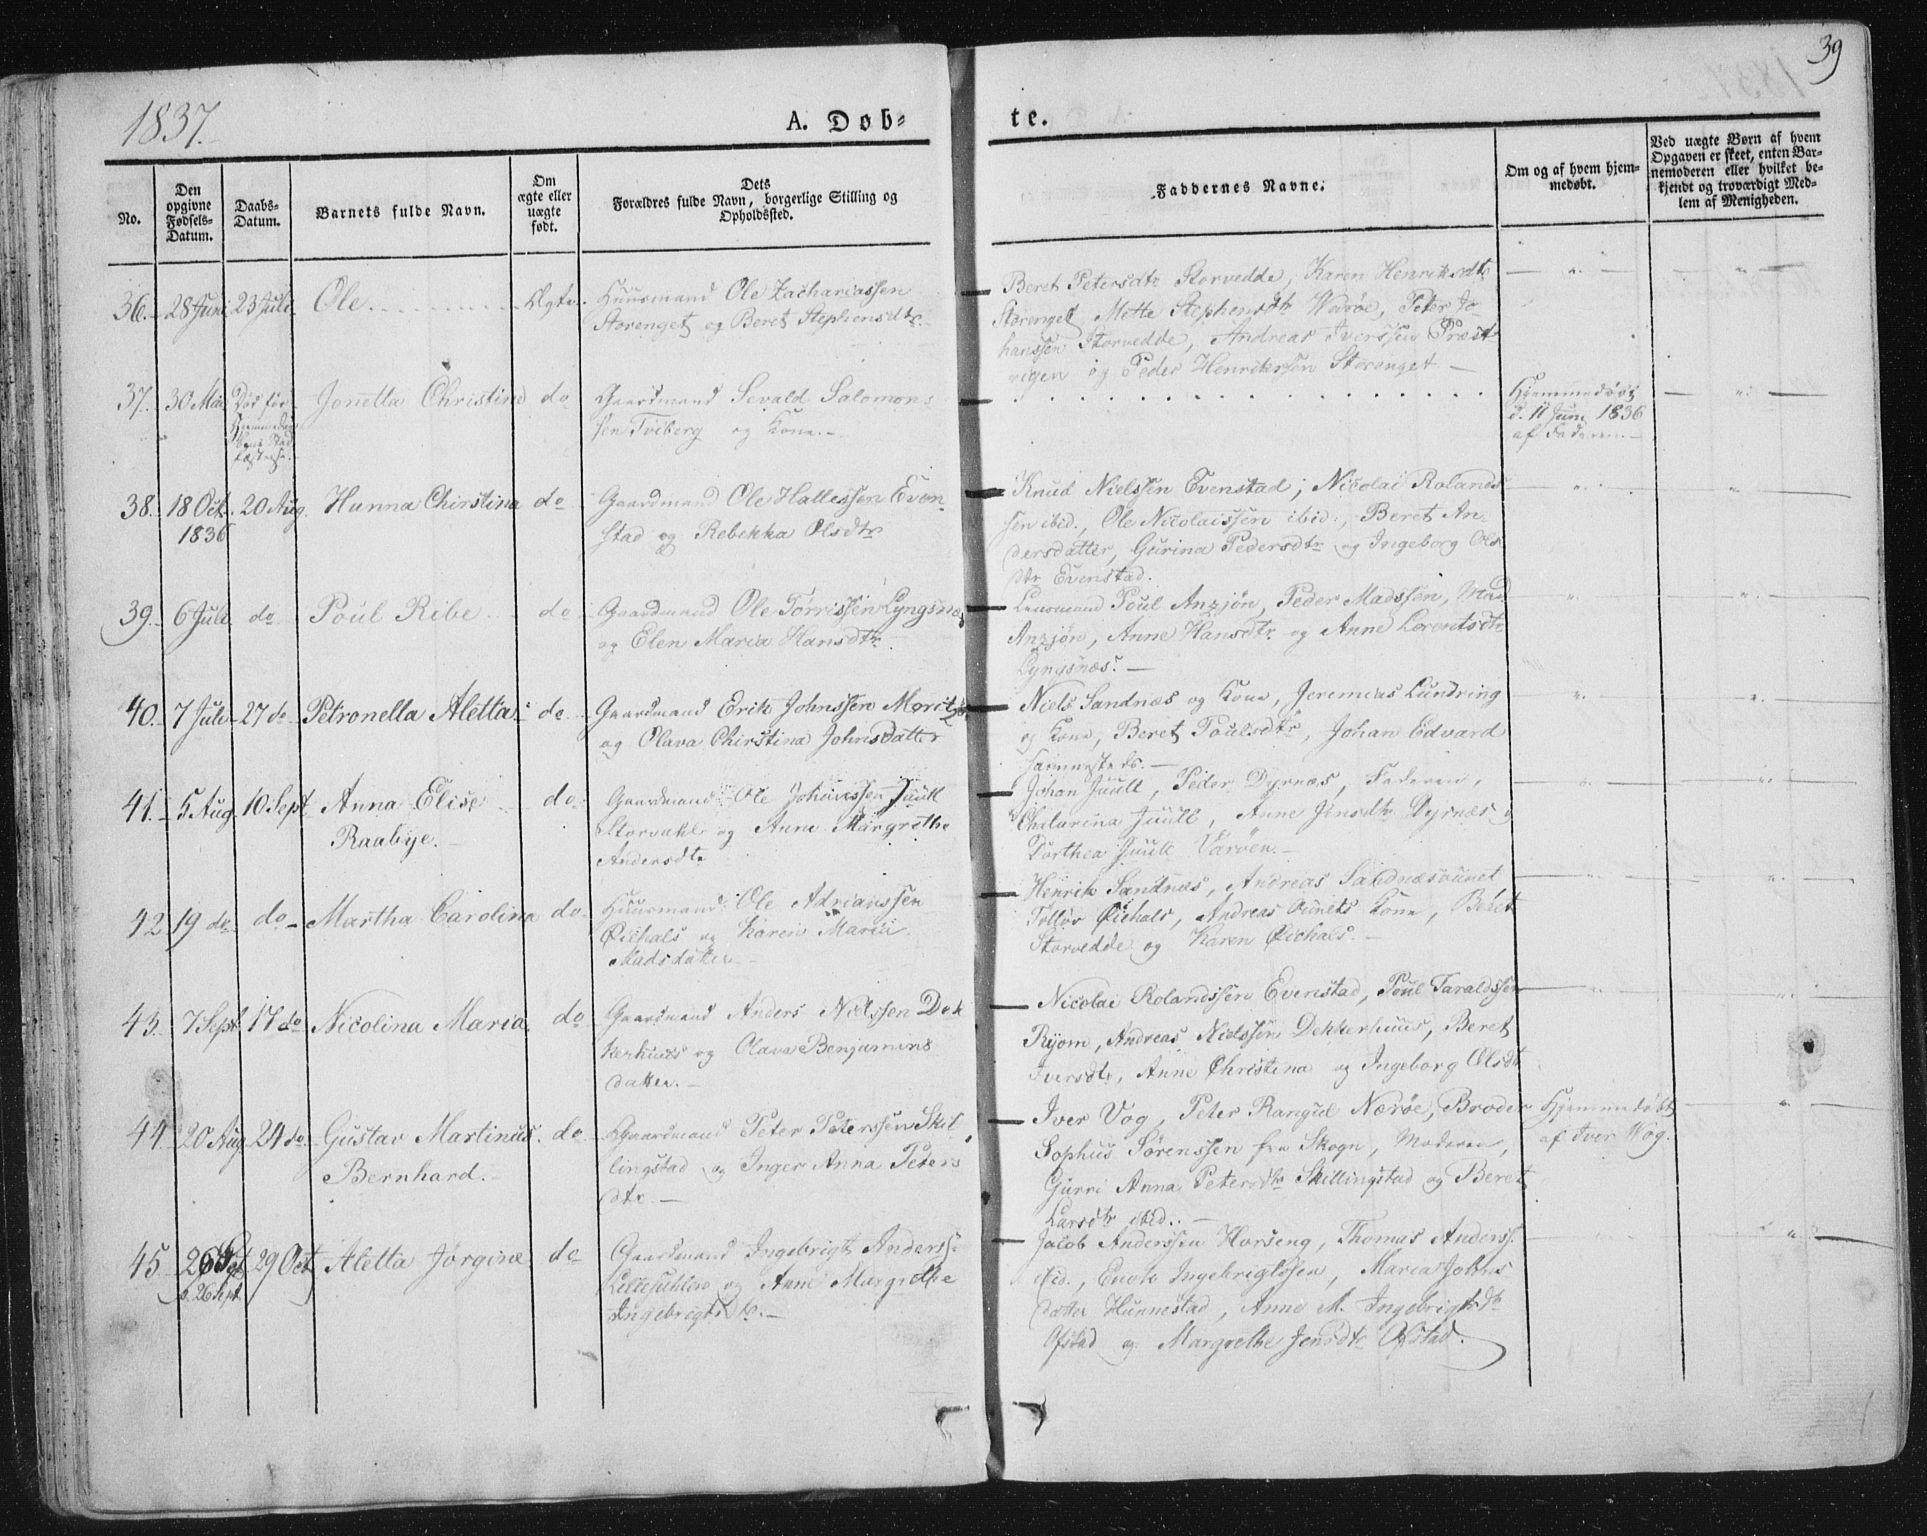 39
1837.
A. Døb-
te.
No.
Den opgivne Fødsels-Datum.
Daabs-Datum.
Barnets fulde Navn.
Om ægte eller uægte født.
Dets Forældres fulde Navn, borgerlige Stilling og Opholdssted.
Faddernes Navne.
Om og af hvem hjem-medøbt.
Ved uægte Børn af hvem Opgaven er skeet, enten Bar-nemoderen eller hvilket be-kjendt og troværdigt Med-lem af Menigheden.
36. 28 Juni 23 Juli Ole Ægte
Huusmand Ole Zachariassen
Storenget og Beret Stephensdtr
Beret Petersdtr Storvedde, Karen Henriksdtr
Storenget Mette Stephensdtr Værøe, Peter Jo-
hanssen Storvedde, Andreas Iverssen Præst-
vigen og Peder Henrikssen Storenget —
37. 30 Mai Død før Jonetta Christine do
Gaardmand Sevald Salomon-
sen Tviberg og Kone. —
Hjemmedøbt
d. 11 Juni 1836
af Faderen. —
38. 18 Oct. 20 Aug. Hanna Chirstina do
1836
Gaardmand Ole Hallessen Even-
stad og Rebekka Olsdtr
Knud Nielssen Evenstad; Nicolai Rolands-
sen ibid., Ole Nicolaissen ibid., Beret An-
dersdatter, Gurina Pedersdtr og Ingeborg Ols
dtr Evenstad.
39. 6 Juli do Poul Ribe do
Gaardmand Ole Tørrissen Lyngsnæs
og Elen Maria Hansdtr
Lensmand Poul Anzjøn, Peder Madssen, Mad
Anzjøn, Anne Hansdtr og Anne Lorentsdtr
Lyngsnæs. —
40. 7 Juli 27 do Petronella Aletta do
Gaardmand Erik Johnssen
og Olava Chirstina Johnsdatter
Niels Sandnæs og Kone, Jeremias Lundring
og Kone, Beret Poulsdtr, Johan Edvard
sammesteds. —
41. 5 Aug. 10 Sept Anna Elise do
Raabye.
Gaardmand Ole Johanssen Juull
og Anne Margrethe
Andersdtr
Johan Juull, Peder Dyrnæs, Faderen,
Chatarina Juull, Anne Jensdtr Dyrnæs og
Dorthea Juull Værøen. —
42 19 do do Martha Carolina do
Huusmand Ole Adrianssen
Øiehals og Karen Maria
Madsdatter —
Henrik Sandnæs, Andreas
Øiehals, Andreas Kone, Beret
Storvedde og Karen Øiehals. —
43. 7 Sept 17 do Nicolina Maria do
Gaardmand Anders Nielssen Dek
kerhuus og Olava Benjamins
datter. —
Nicolai Rolandssen Evenstad, Poul Taraldssen
Ryom, Andreas Nielssen Dekkerhuus, Beret
Iversdtr, Anne Christina og Ingeborg Olsdt
44 20 Aug 24 do Gustav Martinus do
Bernhard. —
Gaardmand Peter Peterssen Skil
lingstad og Inger Anna Peters
dtr —
Iver Vog, Peter Rangul Nærøe, Broder
Sophus Sørenssen fra Skogn, Moderen,
Gurri Anna Petersdtr Skillingstad og Beret
Larsdtr ibid. —
Hjemmedøbt
af Iver Wog.
45 26 Sept 29 Oct Aletta Jørgine do
b. 26 Sept.
Gaardmand Ingebrigt Anderss.
og Anne Margrethe
Ingebrigtsdtr. —
Jacob Anderssen Horseng, Thomas Anderss.
ibid., Enok Ingebrigtssen, Maria Johns
datter Hunnestad, Anne M. Ingebrigtsdtr
Ofstad og Margrethe Jensdtr Ofstad.